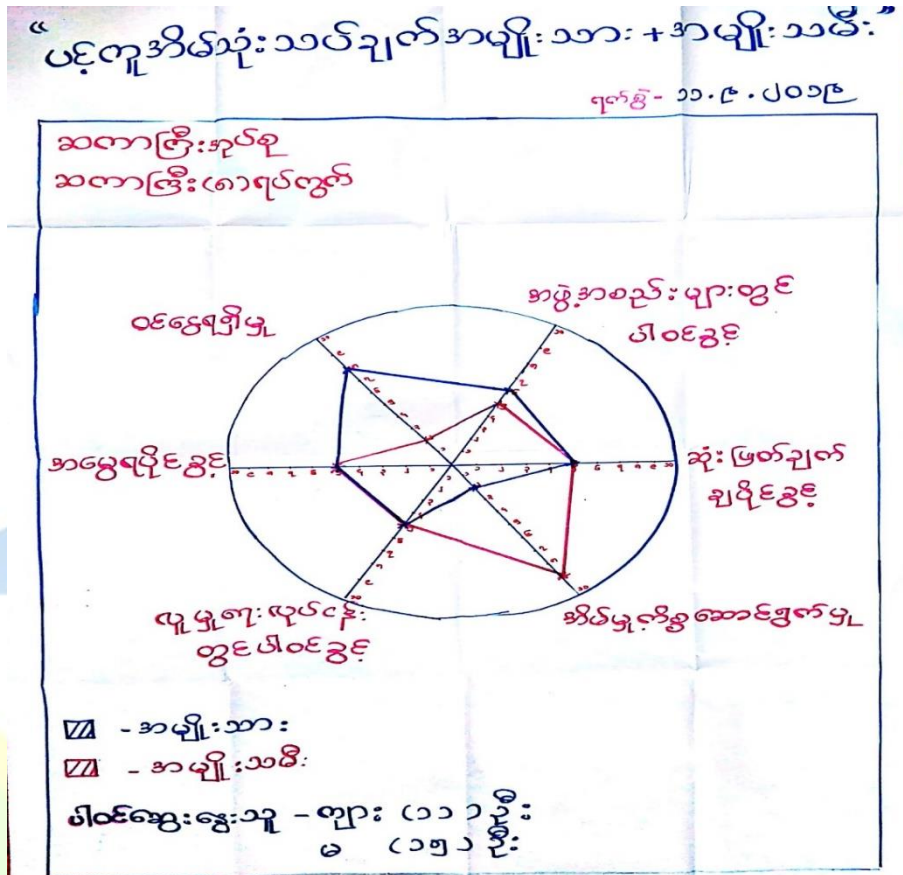 "ပင့်ကူအိမ်သုံးသပ်ချက်အမျိုးသား + အမျိုးသမီး"
ရက်စွဲ - ၁၁.၉.၂၀၁၉
ဆကာကြီးအုပ်စု
ဆကာကြီး(၈)ရပ်ကွက်
အဖွဲ့အစည်းများတွင်
ပါဝင်ခွင့်
ဝင်ငွေရရှိမှု
အမွေရပိုင်ခွင့်
ဆုံးဖြတ်ချက်
ချပိုင်ခွင့်
လူမှုရေးလုပ်ငန်း
တွင်ပါဝင်ခွင့်
အိမ်မှုကိစ္စဆောင်ရွက်မှု
- အမျိုးသား
- အမျိုးသမီး
ပါဝင်ဆွေးနွေးသူ - ကျား (၁၁) ဦး
မ (၁၅) ဦး